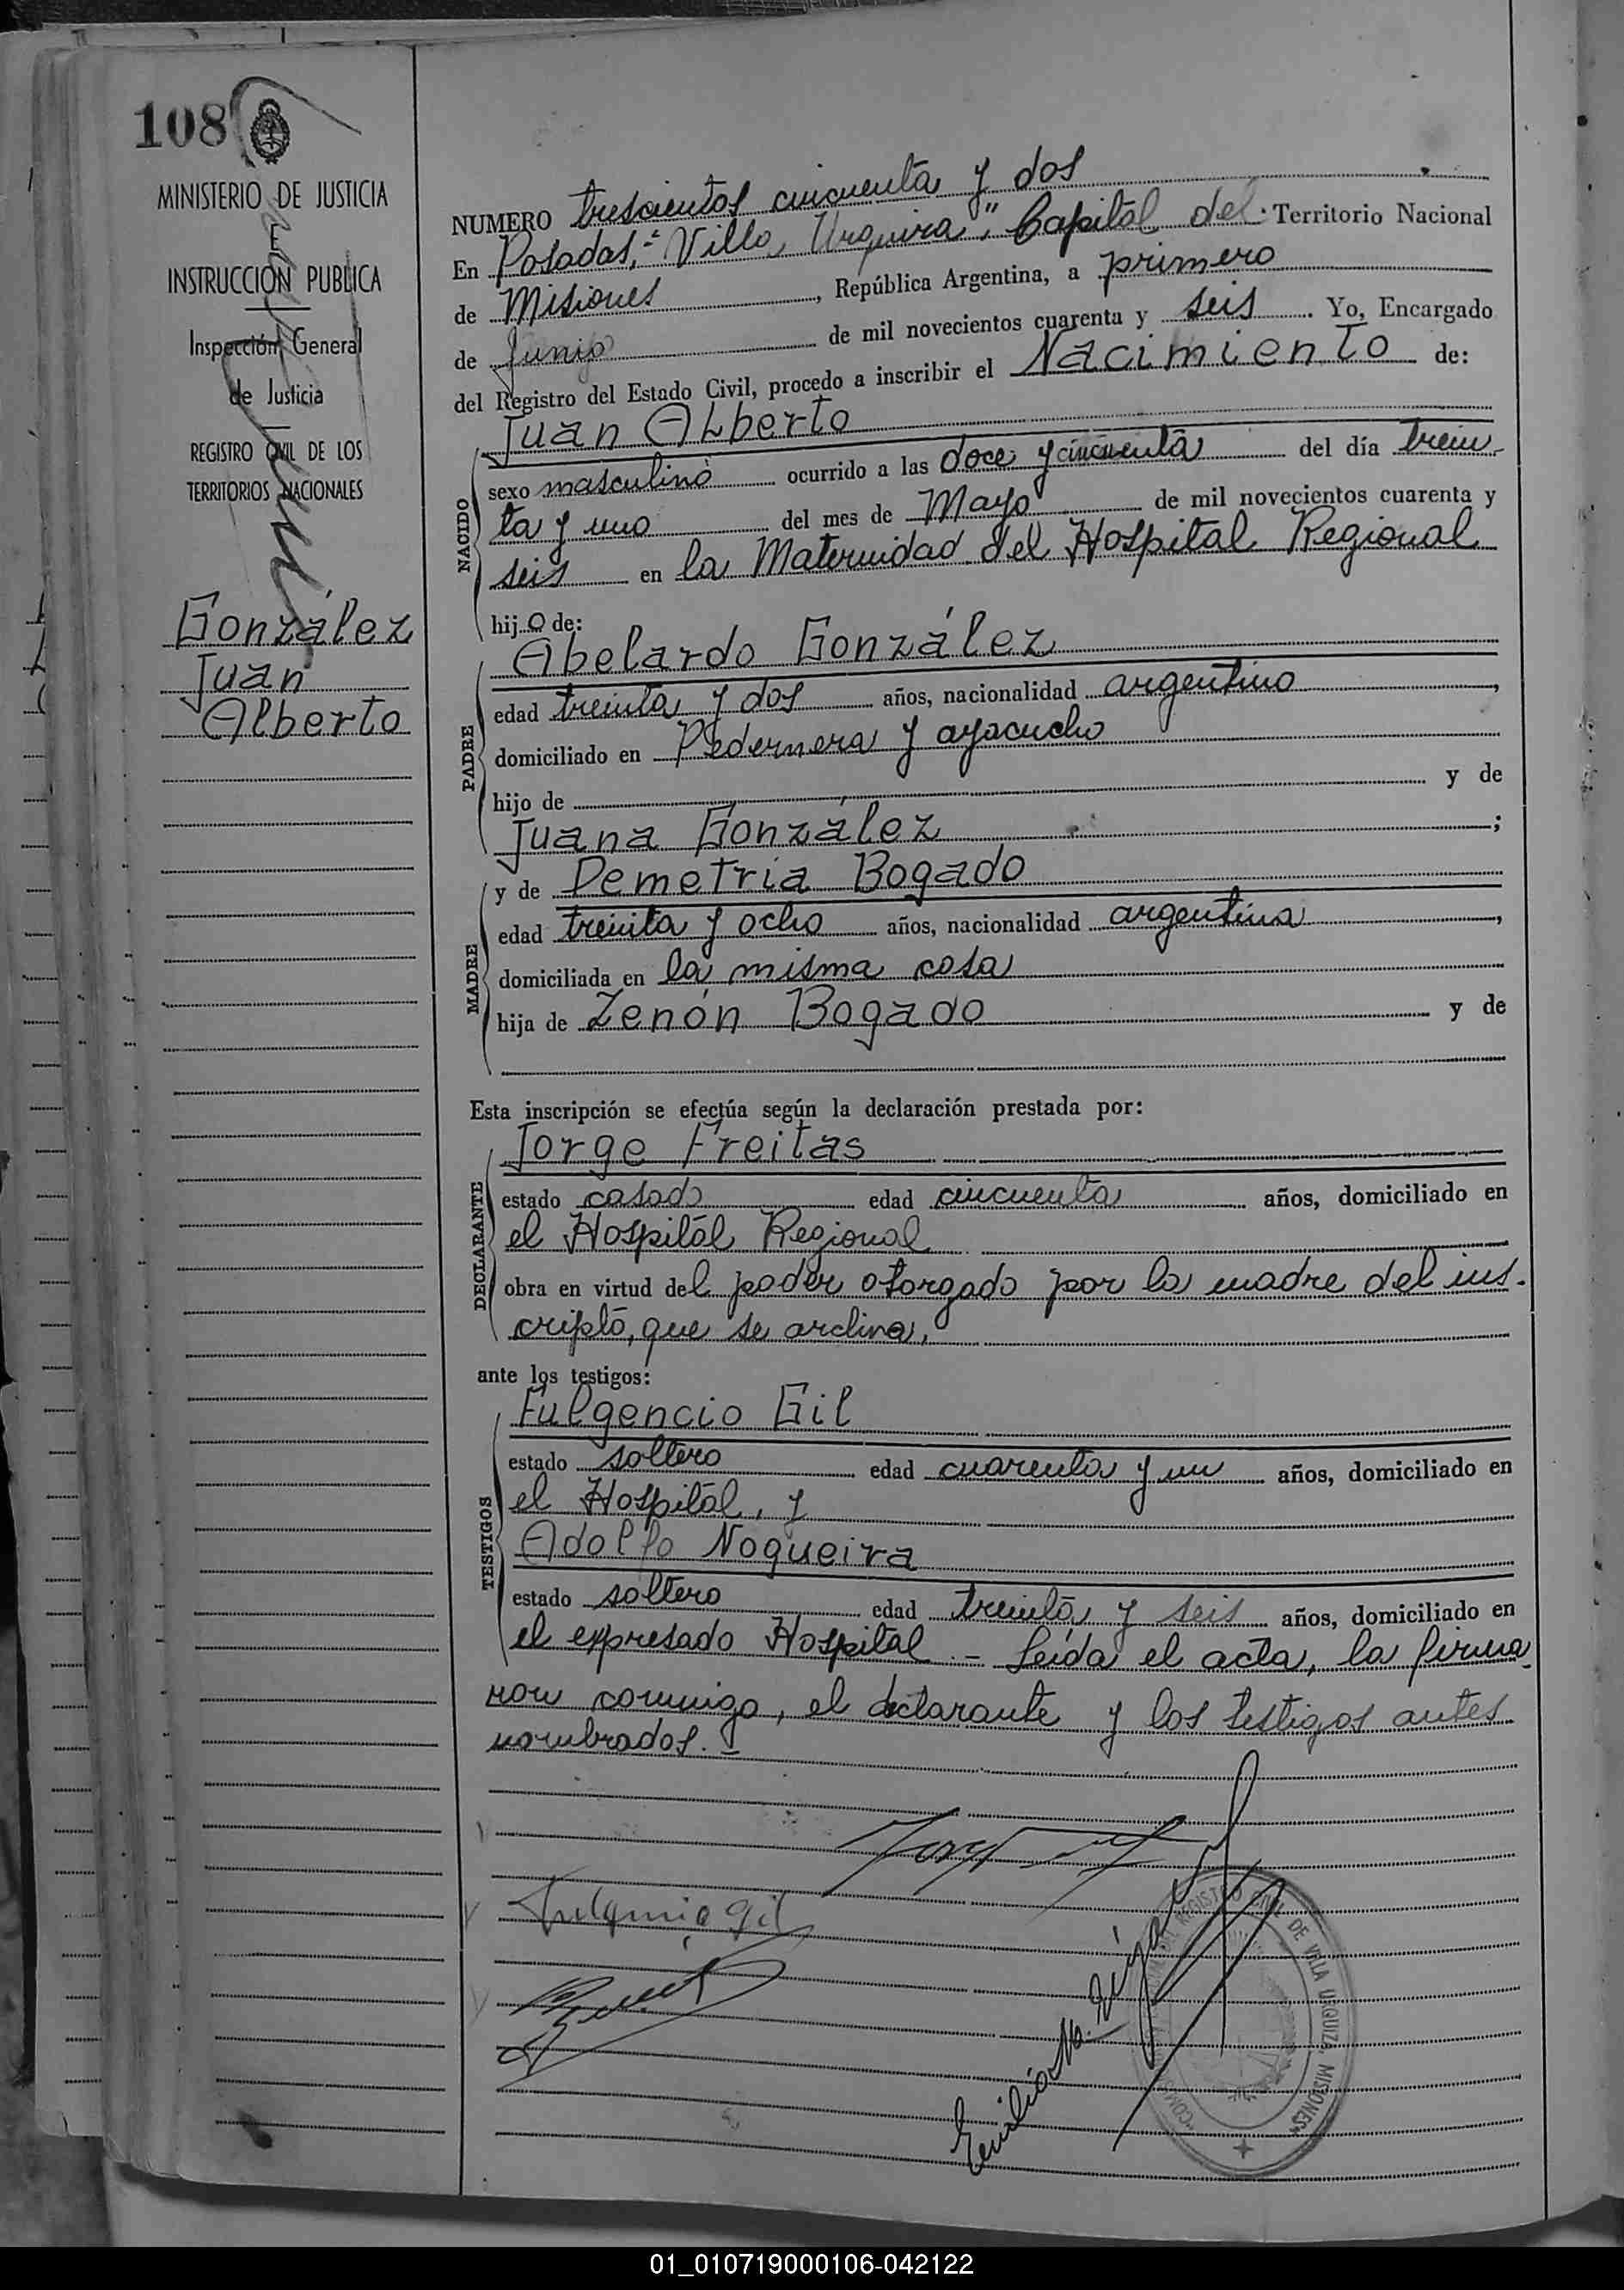 108
MINISTERIO DE JUSTICIA
E
INSTRUCCIÓN PUBLICA
Inspección General
de Justicia
REGISTRO CIVIL DE LOS
TERRITORIOS NACIONALES
González
Juan
Alberto
NUMERO trescientos cincuenta y dos
En Posadas, "Villa Urquiza", Capital del Territorio Nacional
de Misiones, República Argentina, a primero
de Junio de mil novecientos cuarenta y seis. Yo, Encargado
del Registro del Estado Civil, procedo a inscribir el Nacimiento de:
Juan Alberto
NACIDO
sexo masculino ocurrido a las doce y cincuenta del día trein-
ta y uno del mes de Mayo de mil novecientos cuarenta y
seis en la Maternidad del Hospital Regional
hijo de:
PADRE
Abelardo González
edad treinta y dos años, nacionalidad argentino,
domiciliado en Pedernera y ayacucho
hijo de y de
Juana González;
MADRE
y de Demetria Bogado
edad treinta y ocho años, nacionalidad argentina,
domiciliada en la misma casa
hija de Zenón Bogado y de
Esta inscripción se efectúa según la declaración prestada por:
DECLARANTE
Jorge Freitas
estado casado edad cincuenta años, domiciliado en
el Hospital Regional
obra en virtud del poder otorgado por la madre del ins-
cripto, que se archiva,
ante los testigos:
TESTIGOS
Fulgencio Gil
estado soltero edad cuarenta y un años, domiciliado en
el Hospital, y
Adolfo Nogueira
estado soltero edad treinta y seis años, domiciliado en
el expresado Hospital.- Leída el acta, la firma-
ron conmigo, el declarante y los testigos antes
nombrados.-
Fulgencio Gil
REGISTRO CIVIL DE VILLA URQUIZA, MISIONES
01_010719000106-042122